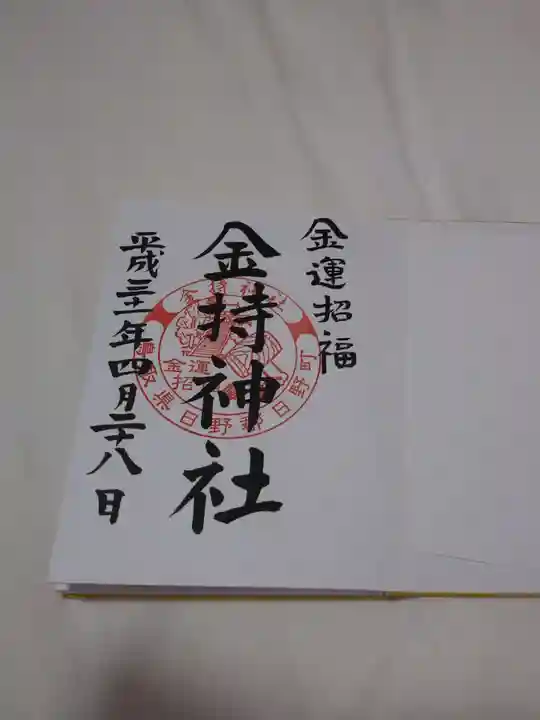 金運招福
金持神社
平成三十一年四月二十八日
金持神社
金運
招
鳥取県日野郡日野町